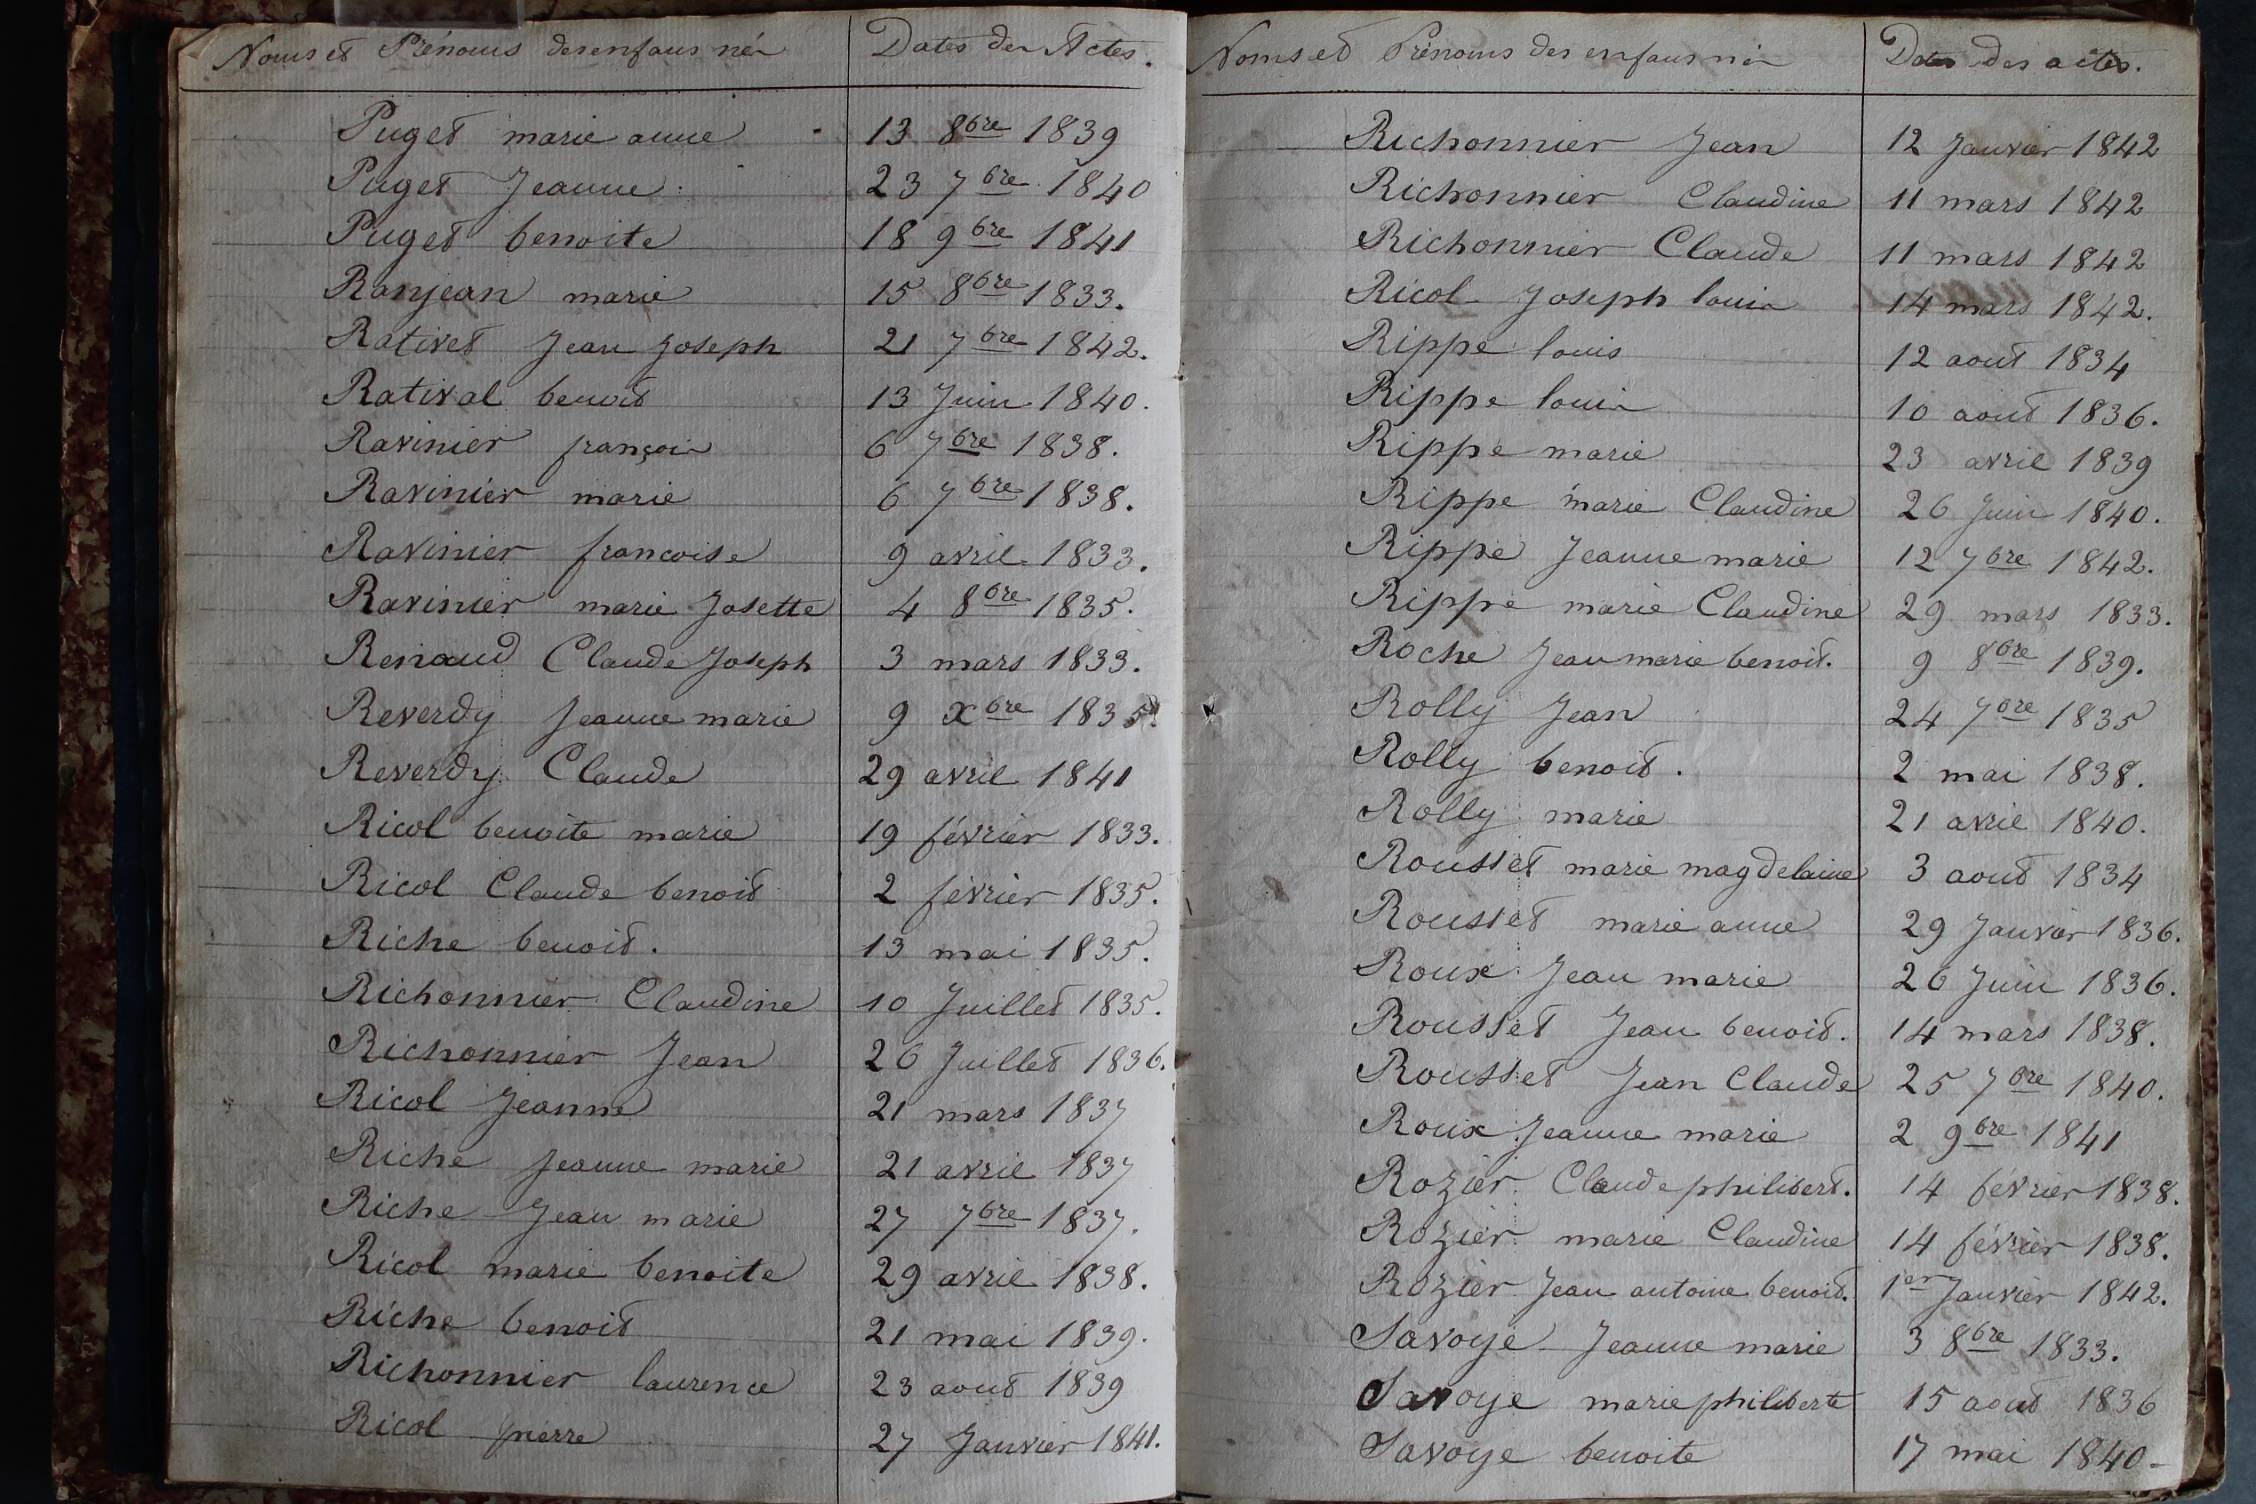 Noms et Prénoms des enfans nés Dates des Actes.
Puget marie anne 13 8bre 1839
Puget Jeanne 23 7bre 1840
Puget benoite 18 9bre 1841
Ranjean marie 15 8bre 1833.
Rativet Jean Joseph 21 7bre 1842.
Ratival benoit 13 Juin 1840.
Ravinier françois 6 7bre 1838.
Ravinier marie 6 7bre 1838.
Ravinier francoise 9 avril 1833.
Ravinier marie Josette 4 8bre 1835.
Renaud Claude Joseph 3 mars 1833.
Reverdy Jeanne marie 9 xbre 1835.
Reverdy Claude 29 avril 1841
Ricol benoite marie 19 février 1833.
Ricol Claude benoit 2 février 1835.
Riche benoit. 13 mai 1835.
Richonnier Claudine 10 Juillet 1835.
Richonnier Jean 26 Juillet 1836.
Ricol Jeanne 21 mars 1837
Riche Jeanne marie 21 avril 1837
Riche Jean marie 27 7bre 1837.
Ricol marie benoite 29 avril 1838.
Riche benoit 21 mai 1839.
Richonnier laurence 23 aout 1839
Ricol pierre 27 Janvier 1841.
Noms et Prénoms des enfans nés Dates des actes.
Richonnier Jean 12 Janvier 1842
Richonnier Claudine 11 mars 1842
Richonnier Claude 11 mars 1842
Ricol Joseph louis 14 mars 1842.
Rippe louis 12 aout 1834
Rippe louis 10 aout 1836.
Rippe marie 23 avril 1839
Rippe marie Claudine 26 Juin 1840.
Rippe Jeanne marie 12 7bre 1842.
Rippe marie Claudine 29 mars 1833.
Roche Jean marie benoit. 9 8bre 1839.
Rolly Jean 24 7bre 1835
Rolly benoit. 2 mai 1838.
Rolly marie 21 avril 1840.
Rousset marie magdelaine 3 aout 1834
Rousset marie anne 29 Janvier 1836.
Roux Jean marie 26 Juin 1836.
Rousset Jean benoit. 14 mars 1838.
Rousset Jean Claude 25 7bre 1840.
Roux Jeanne marie 2 9bre 1841
Rozier Claude philibert. 14 février 1838.
Rozier marie Claudine 14 février 1838.
Rozier Jean antoine benoit. 1er Janvier 1842.
Savoye Jeanne marie 3 8bre 1833.
Savoye marie philiberte 15 aout 1836
Savoye benoite 17 mai 1840-